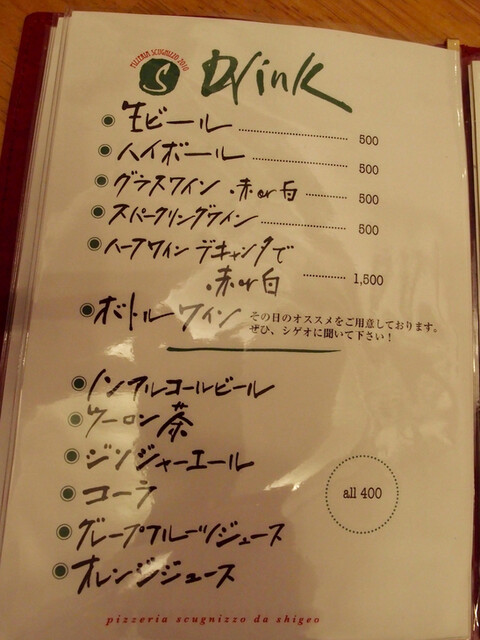 PIZZERIA SCUGNIZZO 2010
S
Drink
生ビール 500
ハイボール 500
グラスワイン 赤or白 500
スパークリングワイン 500
ハーフワイン デキャンタで
赤or白 1,500
ボトルワイン その日のオススメをご用意しております。
ぜひ、シゲオに聞いて下さい！
ノンアルコールビール
ウーロン茶
ジンジャーエール
コーラ
all 400
グレープフルーツジュース
オレンジジュース
pizzeria scugnizzo da shigeo